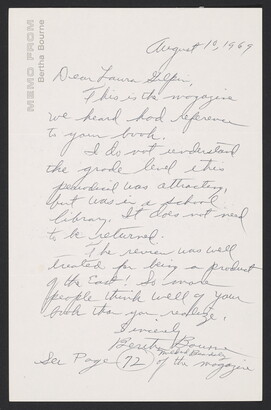 MEMO FROM
Bertha Bourne
August 10, 1969
Dear Laura Gilpin,
This is the magazine
we heard had reference
to your book.
I do not understand
the grade level this
periodical was attracting,
but was in a school
library. It does not need
to be returned.
The review was well
treated for being a product
of the East! So more
people think well of your
book than you realize.
Sincerely
Bertha Bourne
See Page 72 of the magazine